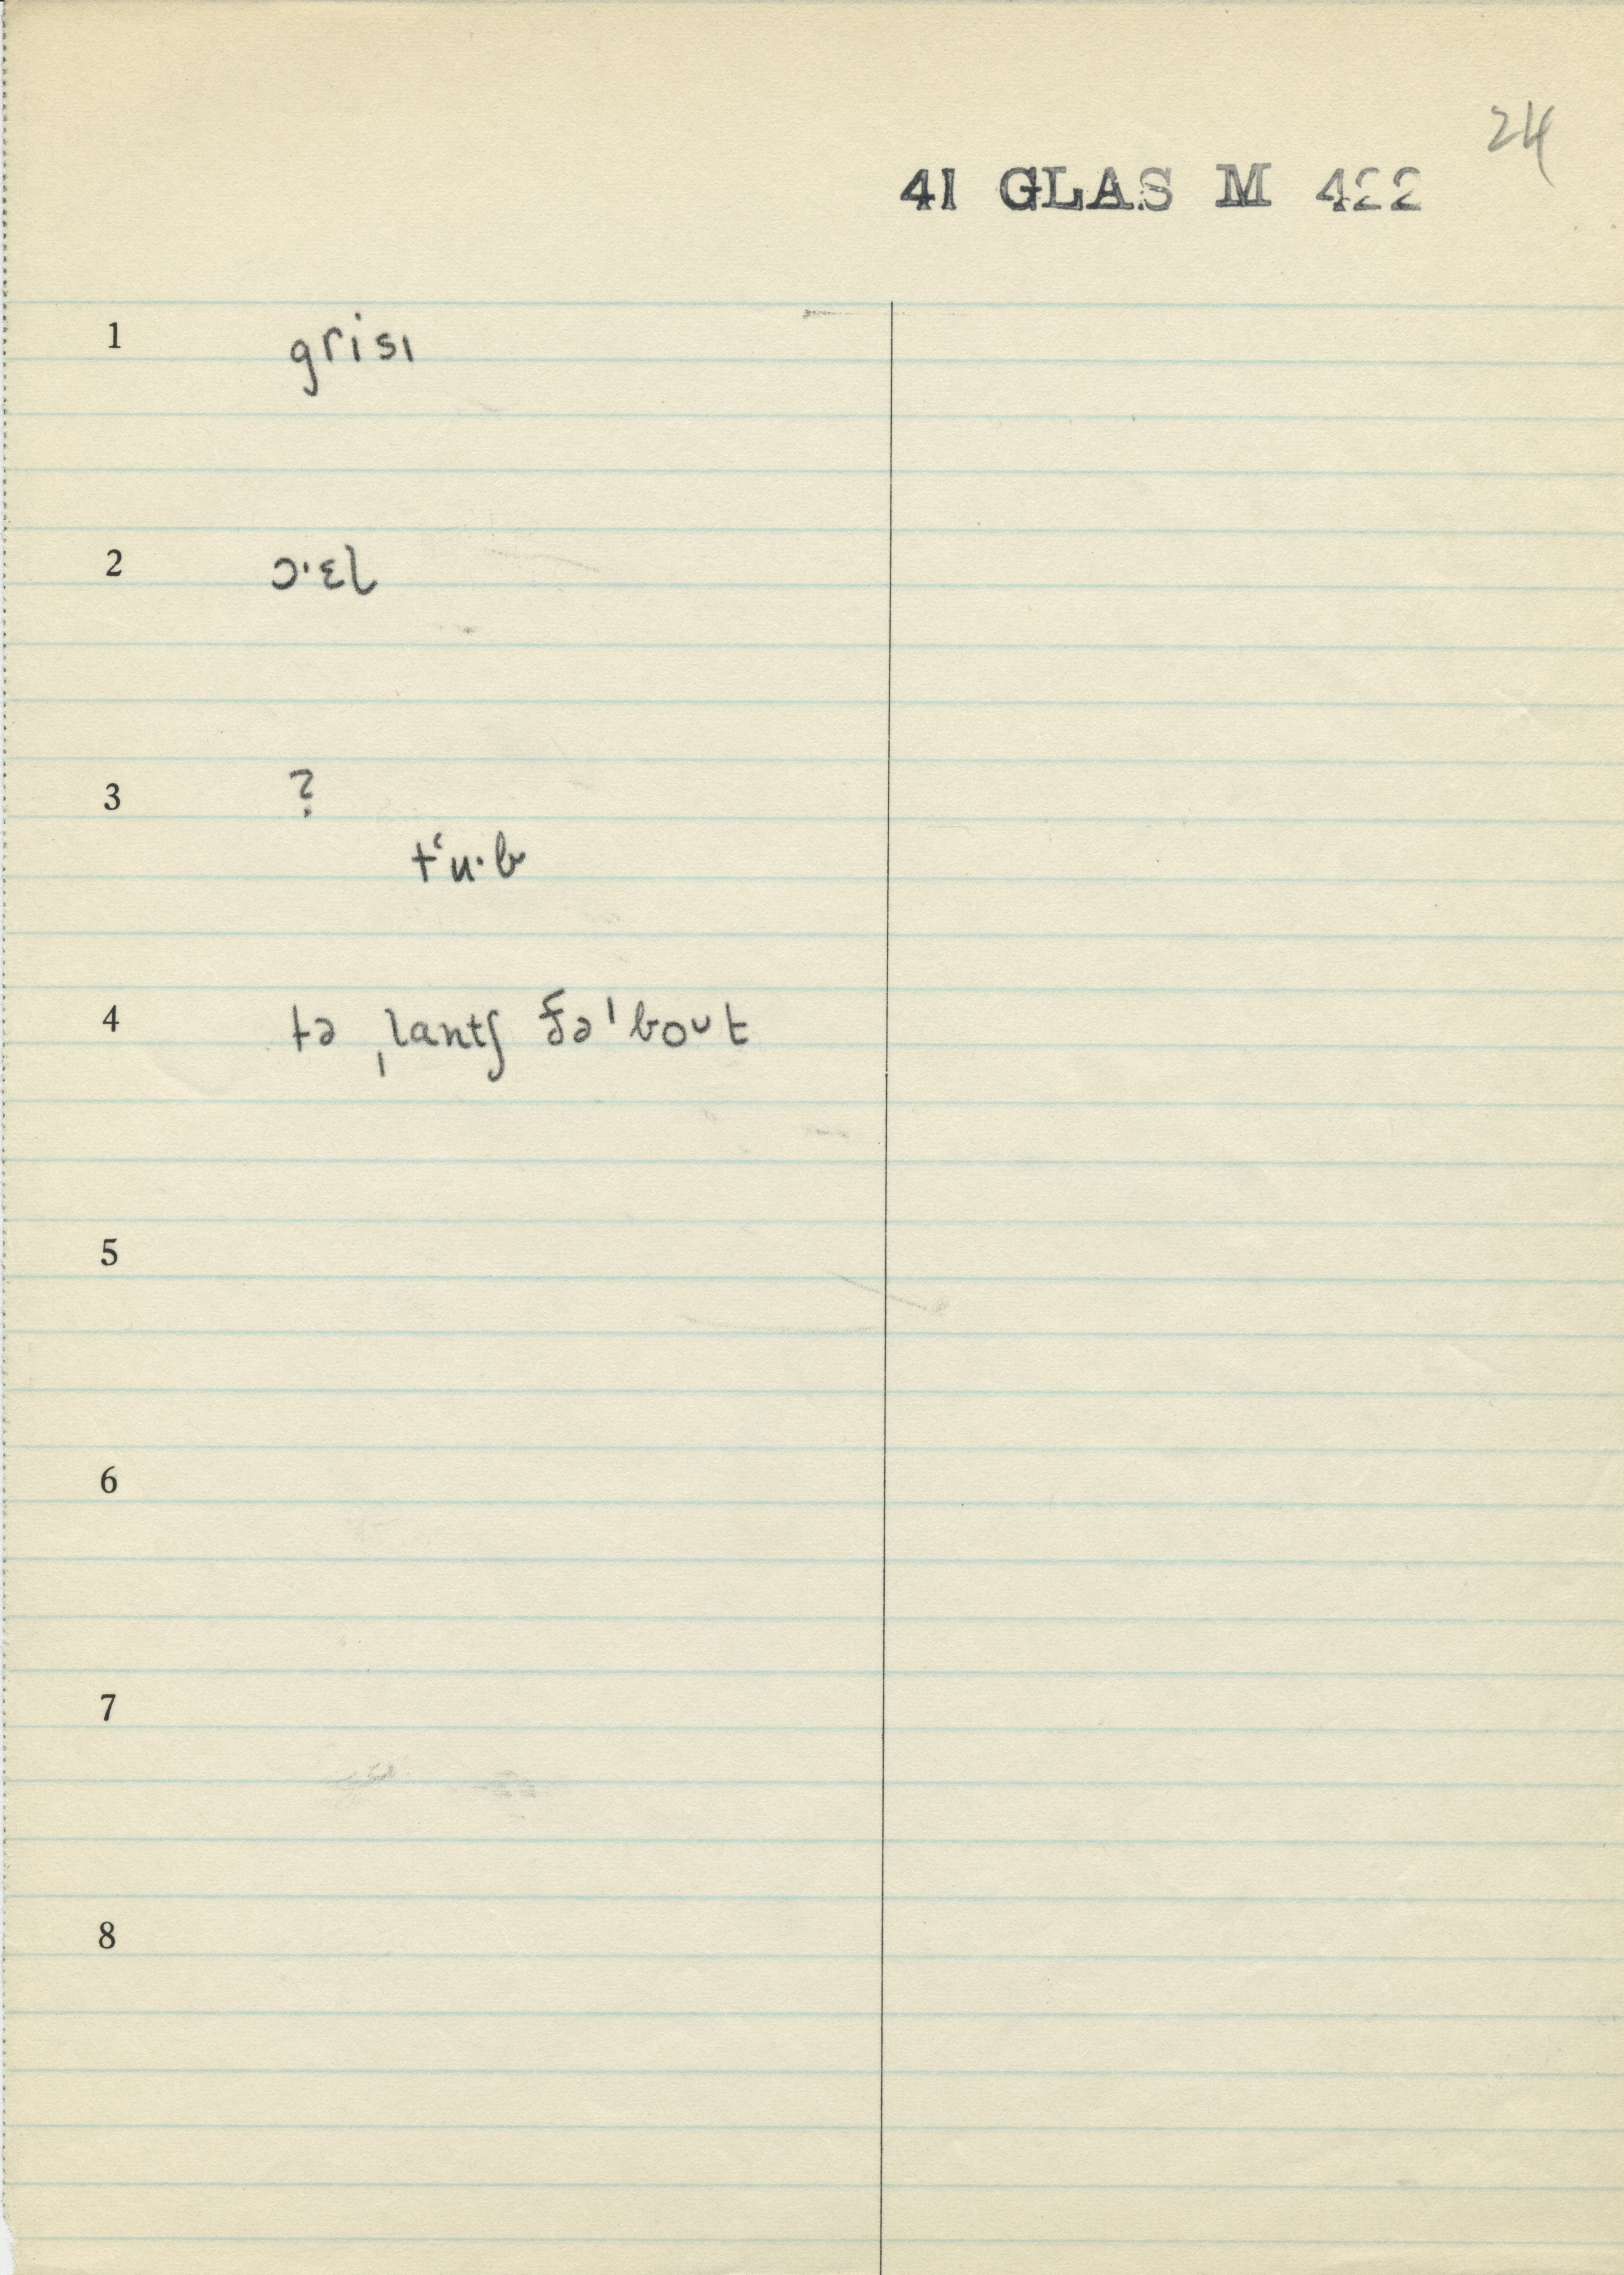 24
41 GLAS M 422
1 grisɪ
2 ɔˑɛl
3 ?
tʻuˑb
4 tə ˌlantʃ ðəˈboᴜt
5
6
7
8